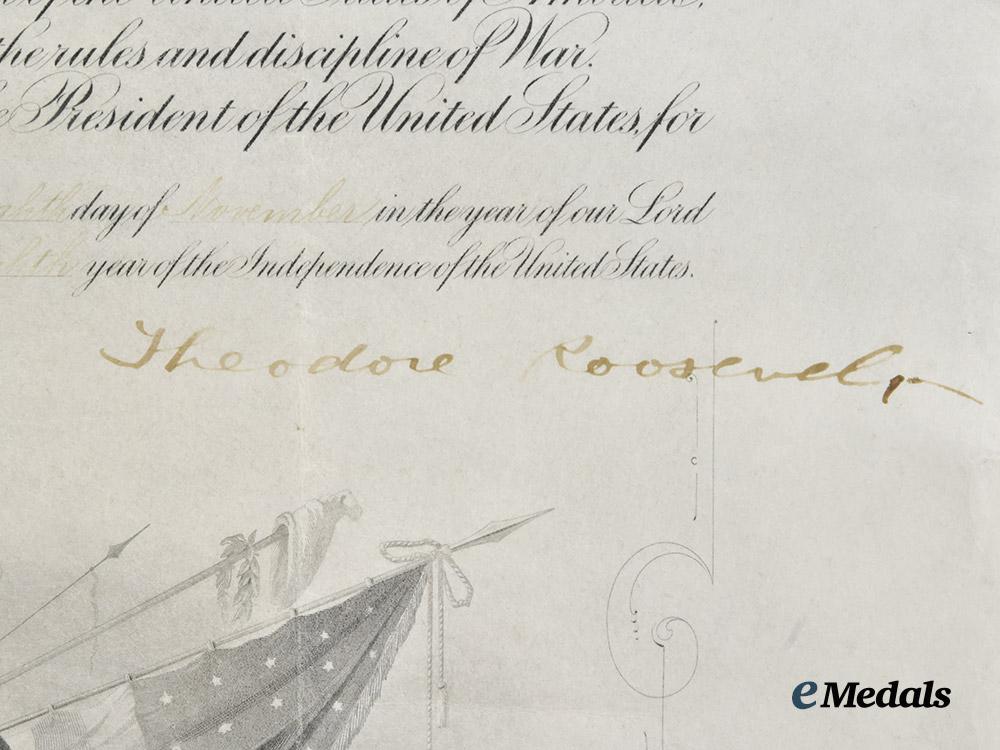 of the United States of America,
the rules and discipline of War.
President of the United States, for
day of November in the year of our Lord
year of the Independence of the United States.
Theodore Roosevelt
eMedals